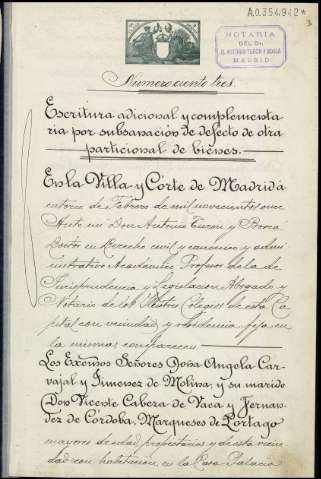 A.0.354,942*
3
NOTARIA
DEL Dr.
D. ANTONIO TURÓN Y BOSCÁ
MADRID
Número ciento tres.
Escritura adicional y complementa
ria por subsanación de defecto de otra
particional de bienes.
En la Villa y Córte de Madrid á
catorce de Febrero de mil novecientos once
Ante mi Don Antonio Turón y Boscá
Doctor en Derecho civil y canónico y admi
nistrativo Académico Profesor de la de
Jurisprudencia y Legislación Abogado y
Notario de los Ilustres Colegios de esta Ca
pital con vecindad y residencia fija en
la misma, comparecen
Los Excmos Señores Doña Angela Car-
vajal y Jimenez de Molina; y su marido
Don Vicente Cabeza de Vaca y Fernan-
dez de Córdoba, Marqueses de Portago
mayores de edad, propietarios y de esta vecin
dad con habitación en la Casa Palacio